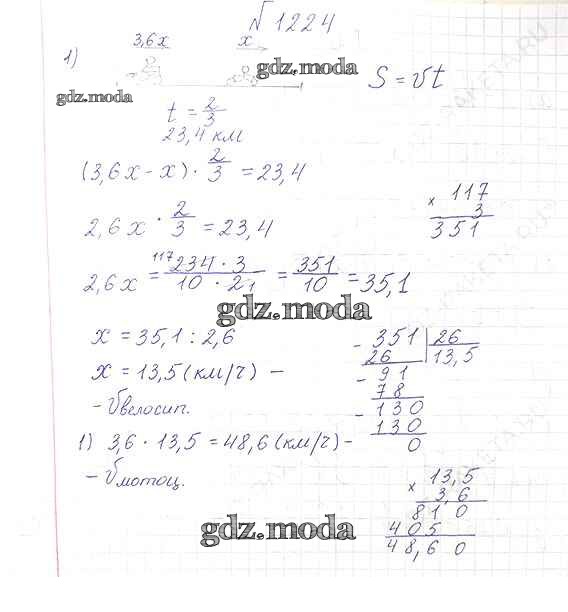 №1224
1) 3,6x x
gdz.moda
gdz.moda
S = vt
t = 2/3
23,4 км
(3,6x - x) · 2/3 = 23,4
2,6x · 2/3 = 23,4
× 117
3
351
2,6x = 117 234 · 3 / 10 · 2 1 = 351/10 = 35,1
gdz.moda
x = 35,1 : 2,6
x = 13,5 (км/ч) -
- vвелосип.
- 351 | 26
26 | 13,5
- 91
78
- 130
130
0
1) 3,6 · 13,5 = 48,6 (км/ч) -
- vмотоц.
× 13,5
3,6
810
405
48,60
gdz.moda